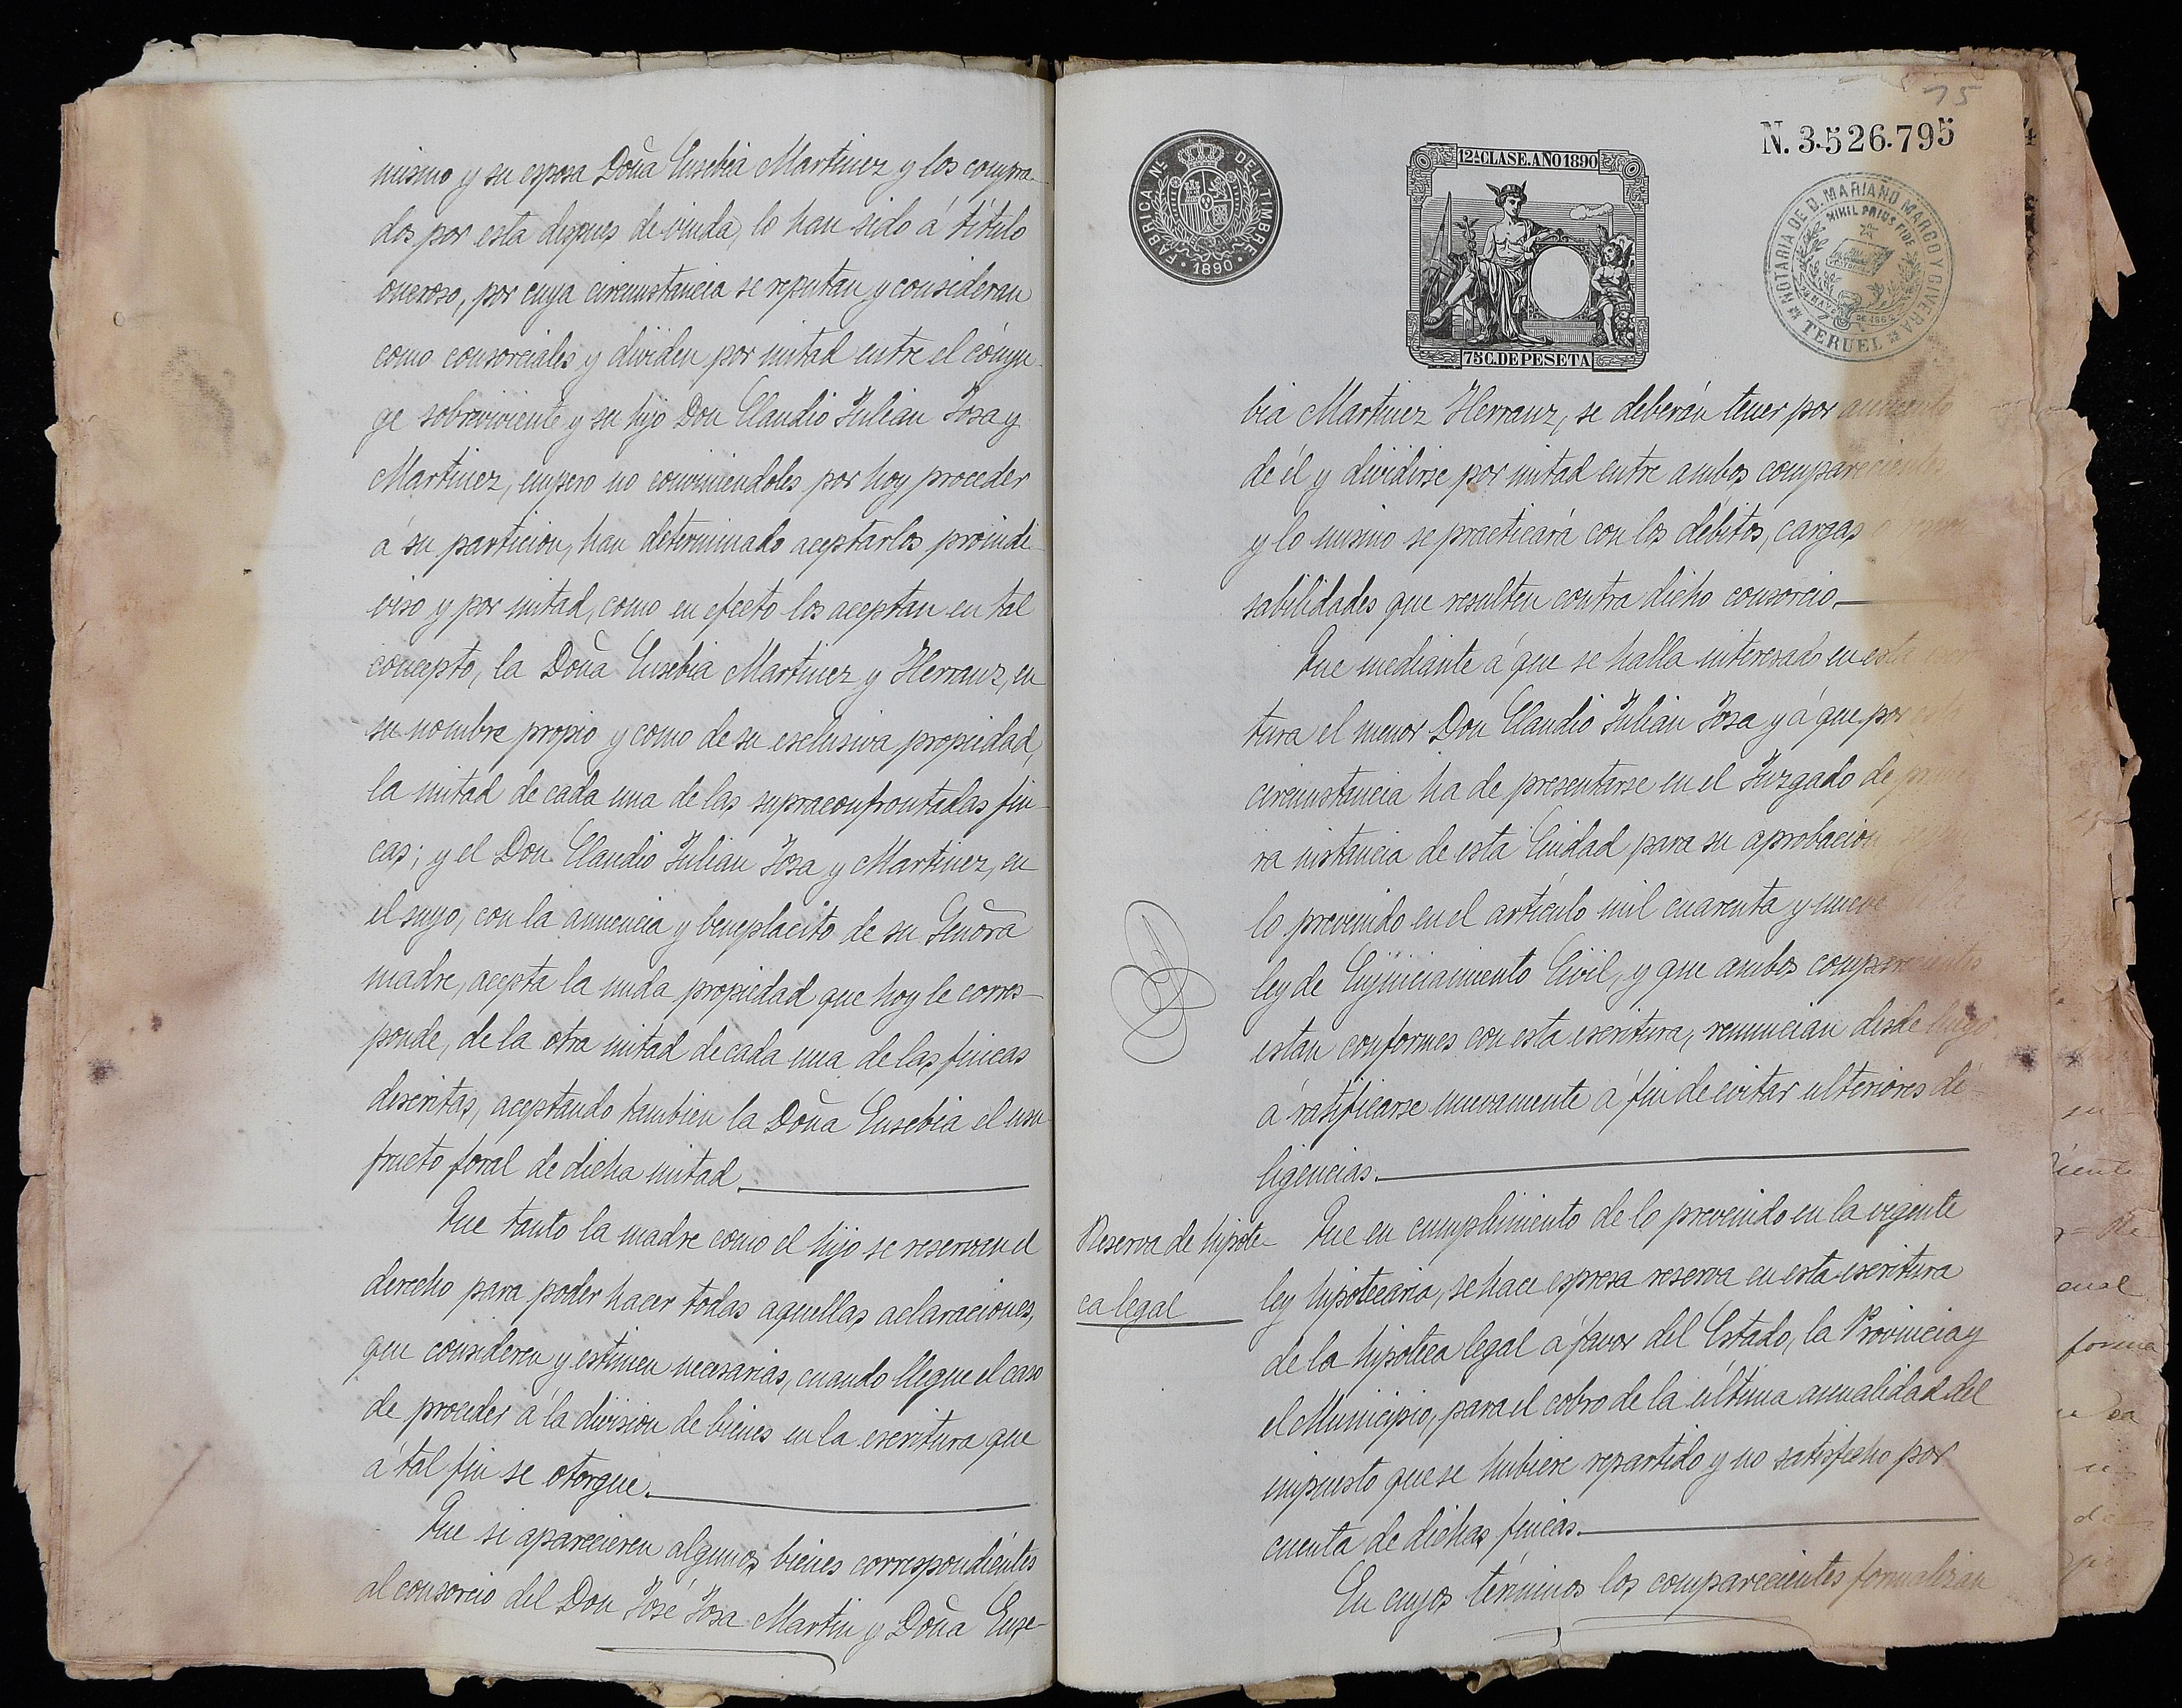 mismo y su esposa Doña Eusebia Martinez y los compra-
dos por esta despues de viuda, lo han sido á título
oneroso, por cuya circunstancia se reputan y consideran
como consorciales y dividen por mitad entre el cónyu-
ge sobreviviente y su hijo Don Claudio Julian Josa y
Martinez, empero no conviniendoles por hoy proceder
á su particion, han determinado aceptarlos proindi-
viso y por mitad, como en efecto los aceptan en tal
concepto, la Doña Eusebia Martinez y Herranz, en
su nombre propio y como de su esclusiva propiedad,
la mitad de cada una de las supraconfrontadas fin-
cas; y el Don Claudio Julian Josa y Martinez, en
el suyo, con la anuencia y beneplacito de su Señora
madre, acepta la nuda propiedad que hoy le corres-
ponde, de la otra mitad de cada una de las fincas
descritas, aceptando tambien la Doña Eusebia el usu-
fructo foral de dicha mitad.
Que tanto la madre como el hijo se reservan el
derecho para poder hacer todas aquellas aclaraciones,
que consideren y estimen necesarias, cuando llegue el caso
de proceder á la division de bienes en la escritura que
á tal fin se otorgue.
Que si aparecieren algunos bienes correspondientes
al consorcio del Don José Josa Martin y Doña Euse-
75
N. 3.526.795
FABRICA NL. DEL TIMBRE
1890
12ª CLASE. AÑO 1890
75 C. DE PESETA
NOTARIA DE D. MARIANO MARCO Y GIVERA
NIHIL PRIUS FIDE
TERUEL
bia Martinez Herranz, se deberán tener por aumento
de él y dividirse por mitad entre ambos comparecientes
y lo mismo se practicará con los débitos, cargas
sabilidades que resulten contra dicho consorcio.
Que mediante á que se halla interesado en esta escri
tura el menor Don Claudio Julian Josa y á que por esta
circunstancia ha de presentarse en el Juzgado de prime
ra instancia de esta Ciudad para su aprobacion
lo prevenido en el artículo mil cuarenta y nueve de la
ley de Enjuiciamiento Civil, y que ambos comparecientes
estan conformes con esta escritura, renuncian desde luego
á ratificarse nuevamente á fin de evitar ulteriores di-
ligencias.
Reserva de hipote-
ca legal
Que en cumplimiento de lo prevenido en la vigente
ley hipotecaria, se hace espresa reserva en esta escritura
de la hipoteca legal á favor del Estado, la Provincia y
el Municipio, para el cobro de la última anualidad del
impuesto que se hubiere repartido y no satisfecho por
cuenta de dichas fincas.
En cuyos términos los comparecientes formalizan